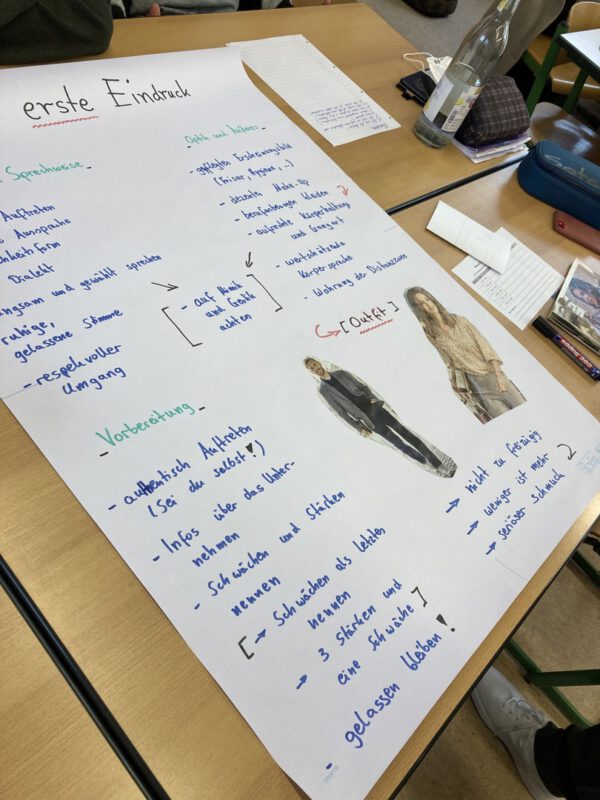 erste Eindruck
Sprechweise
Auftreten
Aussprache
Dialekt
und gewählt sprechen
ruhige,
gelassene Stimme
- respektvoller
Umgang
Optik und
- gepflegtes Erscheinungsbild
(Frisur, Hygiene, ..)
- dezente Make-Up
- berufsbezogen kleiden
- aufrechte Körperhaltung
und Gangart
- wertschätzende
Körpersprache
- Wahrung der Distanzzone
[- auf Mimik
und Gestik
achten]
[Outfit]
→ nicht zu freizügig
→ weniger ist mehr
→ seriöser Schmuck
Vorbereitung
- authentisch Auftreten
(Sei du selbst!)
- Infos über das Unter-
nehmen
- Schwächen und Stärken
nennen
[→ Schwächen als letzten
nennen
→ 3 Stärken und
eine Schwäche]
- gelassen bleiben!